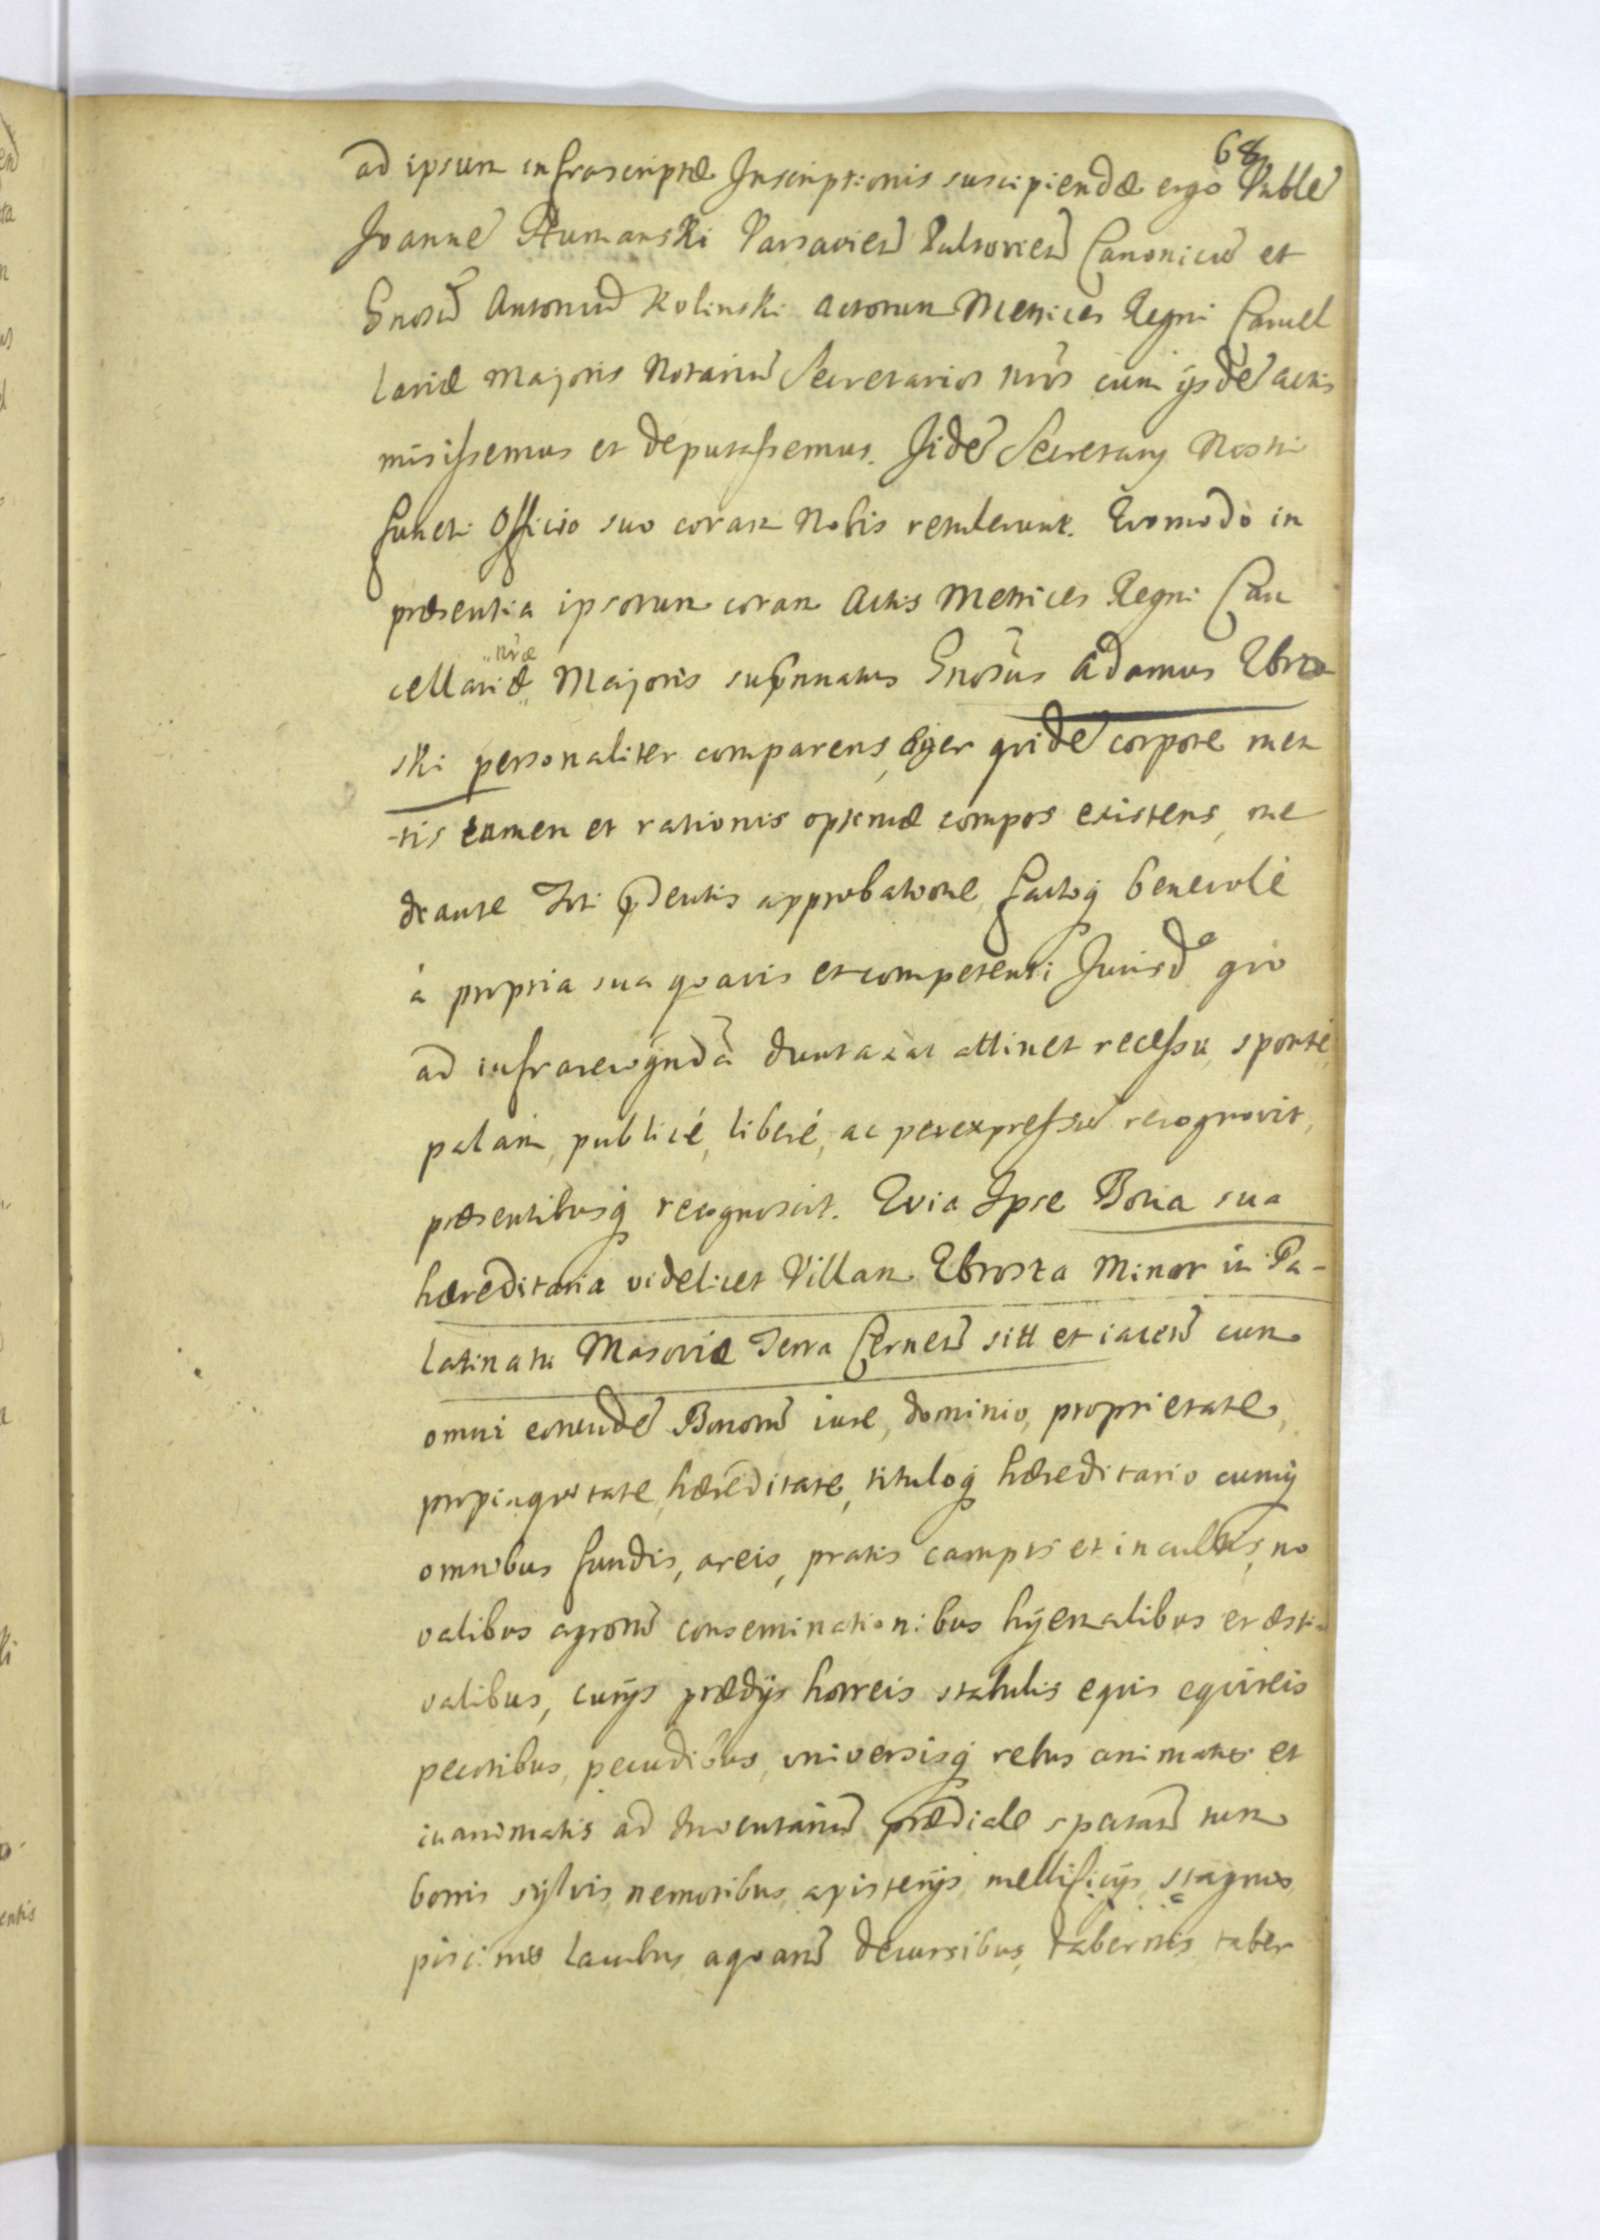 68
ad ipsum infrascriptæ Inscriptionis suscipiendæ ergo Vnble͂
Joanne͂ Humanski Varsavien͂ Pultovien͂ Canonicu͂ et
Gnosu͂ Antoniu͂ Kolinski Actorum Metrices Regni Cancel
lariæ Majoris Notariu͂ Secretarios nr͂os cum ijsde͂ actis
misissemus et deputassemus. Jide͂ Secretarij Nostri
functi Officio suo coram Nobis retulerunt. Quomodo in
præsentia ipsorum coram Actis Metrices Regni Can
cellariæ „nr͂æ„ Majoris supra͂nnatus Gnosus Adamus Zbro
ski personaliter comparens, æger quide͂ corpore men
-tis tamen et rationis optimæ compos existens, me
diante Jrti p͂dentis approbatione factoq́ benevolè
à propria sua quavis et competenti Jurisd͂ᵉ quò
ad infrarecogn͂da͂ duntaxat attinet recessu, spontè,
palam, publicè, liberè, ac per expressu͂ recognovit,
præsentibusq́ recognoscit. Quia Ipse Bona sua
hæreditaria videlicet Villam Zbroszka Minor in Pa-
latinatu Masoviæ Terra Cernen͂ sitt et iacen͂ cum
omni eorunde͂ Bonoru͂ iure, dominio, proprietate,
propinquitate, hæreditate, tituloq́ hæreditario cumq́
omnibus fundis, areis, pratis campis et incultis, no
valibus agroru͂ conseminationibus hÿemalibus et æsti-
valibus, curijs prædijs horreis stabulis equis equireis
pecoribus, pecudibus, universisq́ rebus animatis et
inanimatis ad Inventariu͂ prædiale spectan͂ tum
borris sylvis, nemoribus, apisterijs mellificijs, stagnis,
piscinis lacubus aquaru͂ decursibus, tabernis taber